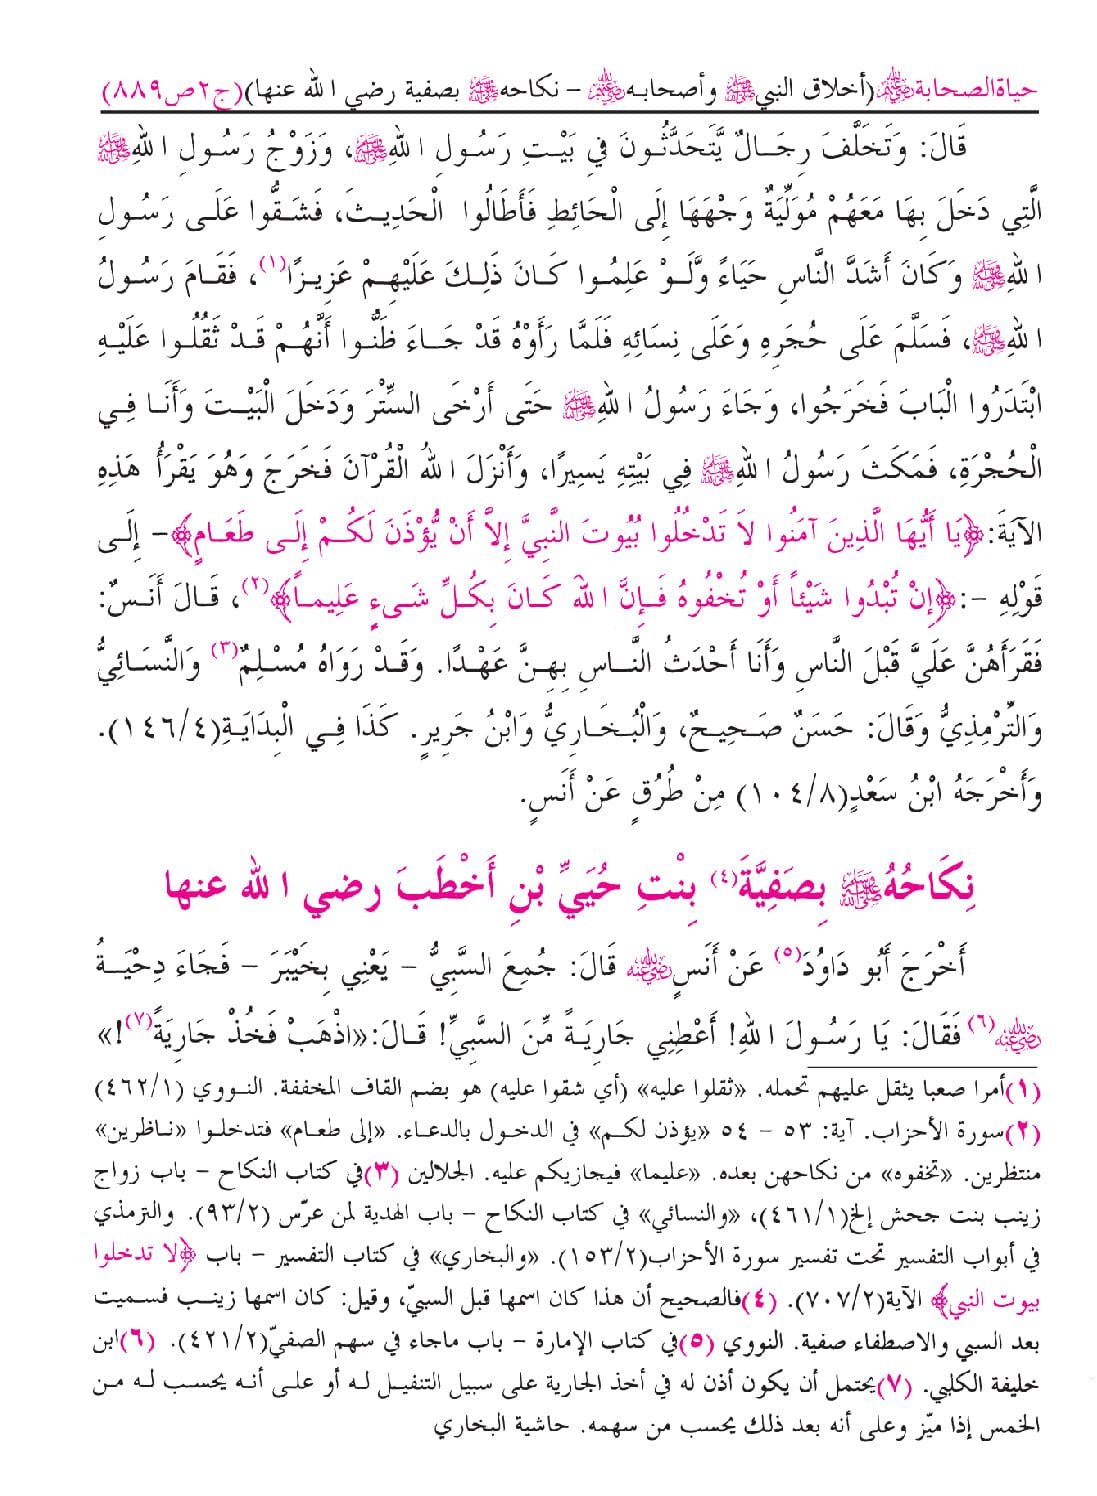 حياةالصحابةﷺ(أخلاق النبيﷺ وأصحابهﷺ – نكاحهﷺ بصفية رضي الله عنها)(ج٢ص٨٨٩)
قَالَ: وَتَخَلَّفَ رِجَالٌ يَّتَحَدَّثُونَ فِي بَيْتِ رَسُولِ اللهِﷺ، وَزَوْجُ رَسُولِ اللهِﷺ
الَّتِي دَخَلَ بِهَا مَعَهُمْ مُوَلِّيَةٌ وَجْهَهَا إِلَى الْحَائِطِ فَأَطَالُوا الْحَدِيثَ، فَشَقُّوا عَلَى رَسُولِ
اللهِﷺ وَكَانَ أَشَدَّ النَّاسِ حَيَاءً وَّلَوْ عَلِمُوا كَانَ ذَلِكَ عَلَيْهِمْ عَزِيزًا(١)، فَقَامَ رَسُولُ
اللهِﷺ، فَسَلَّمَ عَلَى حُجَرِهِ وَعَلَى نِسَائِهِ فَلَمَّا رَأَوْهُ قَدْ جَاءَ ظَنُّوا أَنَّهُمْ قَدْ ثَقُلُوا عَلَيْهِ
ابْتَدَرُوا الْبَابَ فَخَرَجُوا، وَجَاءَ رَسُولُ اللهِﷺ حَتَى أَرْخَى السِّتْرَ وَدَخَلَ الْبَيْتَ وَأَنَا فِي
الْحُجْرَةِ، فَمَكَثَ رَسُولُ اللهِﷺ فِي بَيْتِهِ يَسِيرًا، وَأَنْزَلَ اللهُ الْقُرْآنَ فَخَرَجَ وَهُوَ يَقْرَأُ هَذِهِ
الآيَةَ:﴿يَا أَيُّهَا الَّذِينَ آمَنُوا لاَ تَدْخُلُوا بُيُوتَ النَّبِيِّ إِلاَّ أَنْ يُّؤْذَنَ لَكُمْ إِلَى طَعَامٍ﴾– إِلَى
قَوْلِهِ –:﴿إِنْ تُبْدُوا شَيْئاً أَوْ تُخْفُوهُ فَإِنَّ اللهَ كَانَ بِكُلِّ شَىءٍ عَلِيماً﴾(٢)، قَالَ أَنَسٌ:
فَقَرَأَهُنَّ عَلَيَّ قَبْلَ النَّاسِ وَأَنَا أَحْدَثُ النَّاسِ بِهِنَّ عَهْدًا. وَقَدْ رَوَاهُ مُسْلِمٌ(٣) وَالنَّسَائِيُّ
وَالتِّرْمِذِيُّ وَقَالَ: حَسَنٌ صَحِيحٌ، وَالْبُخَارِيُّ وَابْنُ جَرِيرٍ. كَذَا فِي الْبِدَايَةِ(١٤٦/٤).
وَأَخْرَجَهُ ابْنُ سَعْدٍ(١٠٤/٨) مِنْ طُرُقٍ عَنْ أَنَسٍ.
نِكَاحُهُﷺ بِصَفِيَّةَ(٤) بِنْتِ حُيَيِّ بْنِ أَخْطَبَ رضي الله عنها
أَخْرَجَ أَبُو دَاوُدَ(٥) عَنْ أَنَسٍ رضي الله عنه قَالَ: جُمِعَ السَّبِيُّ – يَعْنِي بِخَيْبَرَ – فَجَاءَ دِحْيَةُ
رضي الله عنه(٦) فَقَالَ: يَا رَسُولَ اللهِ! أَعْطِنِي جَارِيَةً مِّنَ السَّبِيِّ! قَالَ:«اذْهَبْ فَخُذْ جَارِيَةً(٧)!»
(١)أمرا صعبا يثقل عليهم تحمله. «ثقلوا عليه» (أي شقوا عليه) هو بضم القاف المخففة. النووي (٤٦٢/١)
(٢)سورة الأحزاب. آية: ٥٣ – ٥٤ «يؤذن لكم» في الدخول بالدعاء. «إلى طعام» فتدخلوا «ناظرين»
منتظرين. «تخفوه» من نكاحهن بعده. «عليما» فيجازيكم عليه. الجلالين (٣)في كتاب النكاح – باب زواج
زينب بنت جحش إلخ(٤٦١/١)، «والنسائي» في كتاب النكاح – باب الهدية لمن عرّس (٩٣/٢). والترمذي
في أبواب التفسير تحت تفسير سورة الأحزاب(١٥٣/٢). «والبخاري» في كتاب التفسير – باب ﴿لا تدخلوا
بيوت النبي﴾ الآية(٧٠٧/٢). (٤)فالصحيح أن هذا كان اسمها قبل السبيّ، وقيل: كان اسمها زينب فسميت
بعد السبي والاصطفاء صفية. النووي (٥)في كتاب الإمارة – باب ماجاء في سهم الصفيّ(٤٢١/٢). (٦)ابن
خليفة الكلبي. (٧)يحتمل أن يكون أذن له في أخذ الجارية على سبيل التنفيل له أو على أنه يحسب له من
الخمس إذا ميّز وعلى أنه بعد ذلك يحسب من سهمه. حاشية البخاري